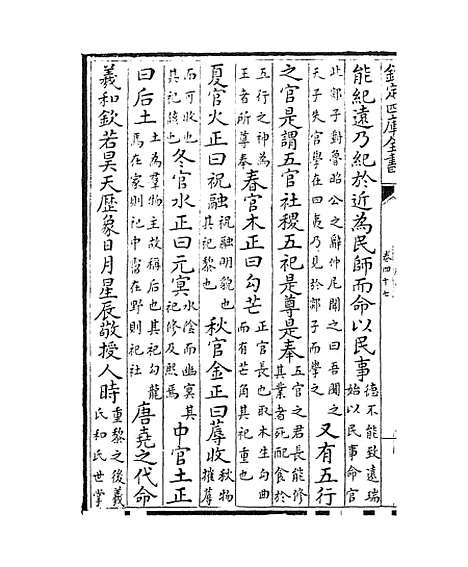 欽定四庫全書
卷四十七
能紀遠乃紀於近為民師而命以民事德不能致遠瑞始以民事命官
此郯子對魯昭公之辭仲尼聞之曰吾聞之天子失官學在四夷乃見於郯子而學之又有五行
之官是謂五官社稷五祀是尊是奉五官之君長能修其業者死配食於
五行之神為王者所尊奉春官木正曰勾芒正官長也取木生勾曲而有芒角其祀重也
夏官火正曰祝融祝融明貌也其祀黎也秋官金正曰蓐收秋物摧蓐
而可收也其祀該也冬官水正曰元冥水陰而幽冥其祀修及熙焉中官土正
曰后土土為羣物主故稱后也其祀勾龍焉在家則祀中霤在野則祀社唐堯之代命
羲和欽若昊天歷象日月星辰敬授人時重黎之後羲氏和氏世掌